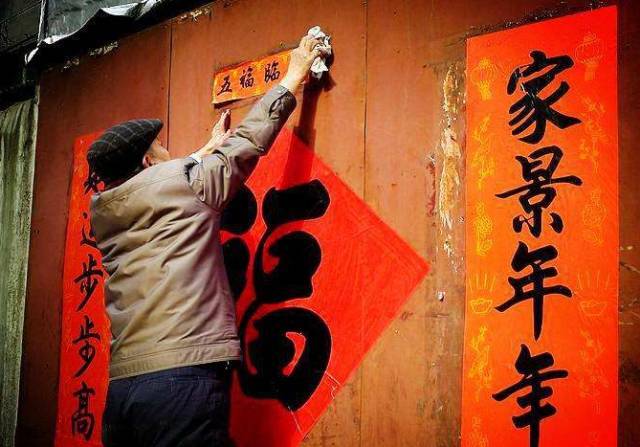 五福临
家景年年
福
步步高